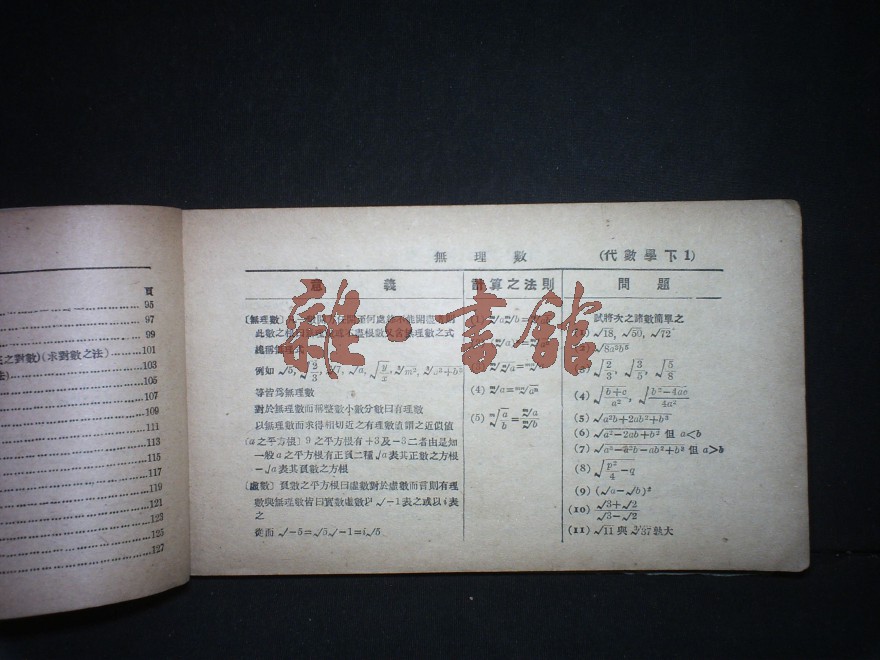 頁
95
97
99
之對數)(求對數之法) 101
法) 103
105
107
109
111
113
115
117
119
121
123
125
127
無理數 (代數學下1)
意義 計算之法則 問題
[無理數]
此數之根
總稱無理
例如 √5, √(2/3), √7, √a, √(y/x), ⁿ√m², ⁿ√(a²+b³)
等皆爲無理數
對於無理數而稱整數小數分數曰有理數
以無理數而求得相切近之有理數値謂之近似值
(a之平方根) 9之平方根有+3及−3二者由是知
一般a之平方根有正負二種√a表其正數之方根
−√a表其負數之方根
[虛數] 負數之平方根曰虛數對於虛數而言則有理
數與無理數皆曰實數虛數以√−1表之或以i表
之
從而 √−5=√5√−1=i√5
(4) ⁿ√a=
(5) ⁿ√(a/b)=ⁿ√a/ⁿ√b
試將次之諸數簡單之
(1) √18, √50, √72
(2) √(8a³b⁵)
(3) √(2/3), √(3/5), √(5/8)
(4) √((b+c)/a²), √((b²−4ac)/4a²)
(5) √(a²b+2ab²+b³)
(6) √(a²−2ab+b²) 但 a<b
(7) √(a³−a²b−ab²+b³) 但 a>b
(8) √(p²/4−q)
(9) (√a−√b)²
(10) (√3+√2)/(√3−√2)
(11) √11 與 ³√37 孰大
雜·書館